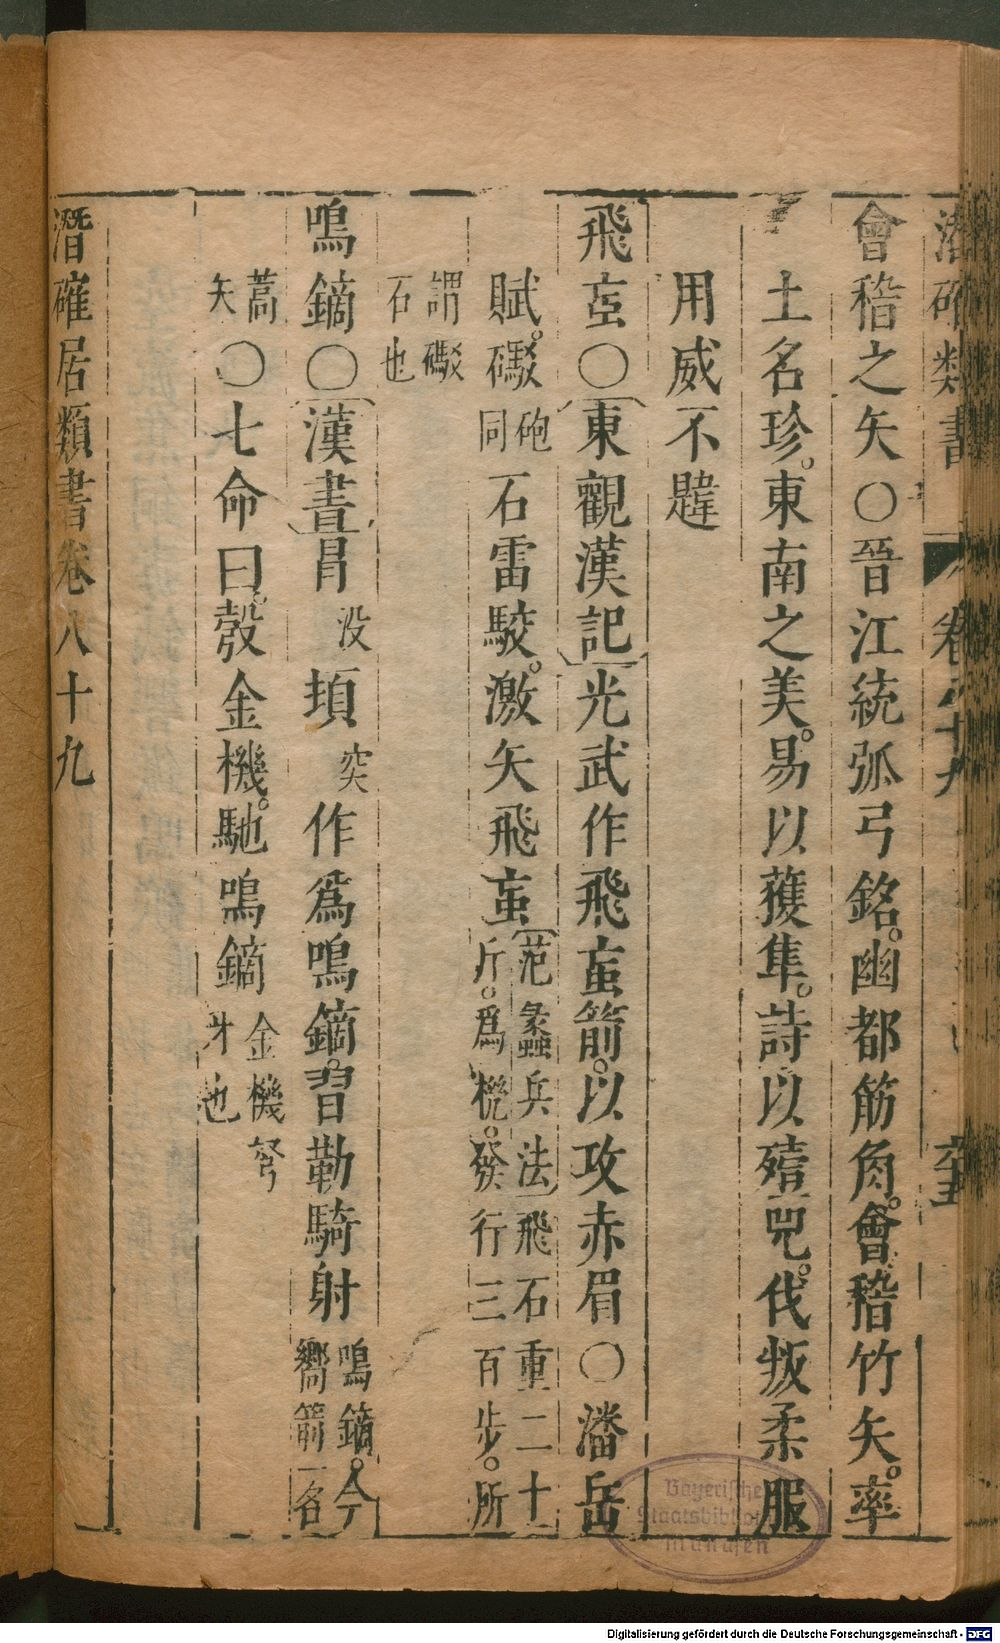 潛確類書 卷八十九
會稽之矢〇晉江統弧弓銘。幽都筋角。會稽竹矢。率
土名珍。東南之美。易以獲隼。詩以殪兕。伐叛柔服
用威不韙
飛䖟〇東觀漢記光武作飛䖟箭。以攻赤眉〇潘岳
賦。礮砲同石雷駭。激矢飛䖟范蠡兵法飛石重二十斤。爲機。發行三百步。所
謂礮石也
鳴鏑〇漢書冒没頓突作爲鳴鏑。習勒騎射鳴鏑。今嚮箭一名
蒿矢〇七命曰。彀金機。馳鳴鏑金機弩牙也
潛確居類書卷八十九
Bayerische
Staatsbibliothek
München
Digitalisierung gefördert durch die Deutsche Forschungsgemeinschaft - DFG